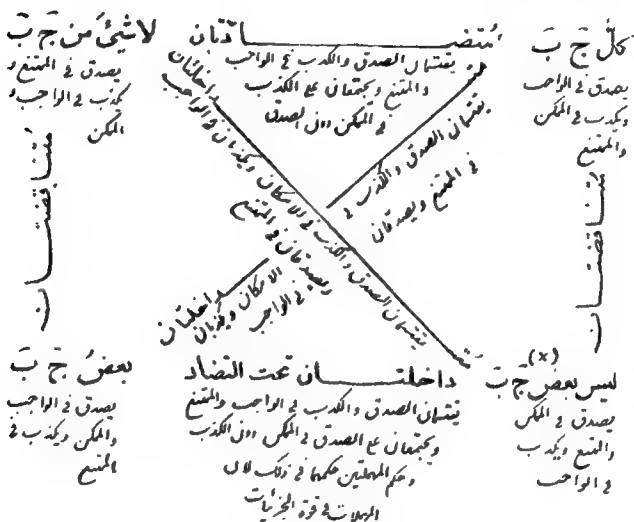 كلّ جَ بَ
يصدق في الواجب
ويكذب في الممكن
والممتنع
متضادّتان
يقتسمان الصدق والكذب في الواجب
والممتنع ويجتمعان على الكذب
في الممكن دون الصدق
لا شيئَ من جَ بَ
يصدق في الممتنع و
يكذب في الواجب و
الممكن
متناقضتان
متناقضتان
متداخلتان
يقتسمان الصدق والكذب في الامكان ويكذبان في الواجب
ويصدقان في الممتنع
متداخلتان
يقتسمان الصدق والكذب في
في الممتنع ويصدقان
الامكان ويكذبان
في الواجب
(×)
ليس بعض جَ بَ
يصدق في الممكن
والممتنع ويكذب
في الواجب
داخلتان تحت التضاد
يقتسمان الصدق والكذب في الواجب والممتنع
ويجتمعان على الصدق في الممكن دون الكذب
وحكم المهملتين حكمهما في ذلك لان
المهملات في قوة الجزئيات
بعضُ جَ بَ
يصدق في الواجب
والممكن ويكذب في
الممتنع